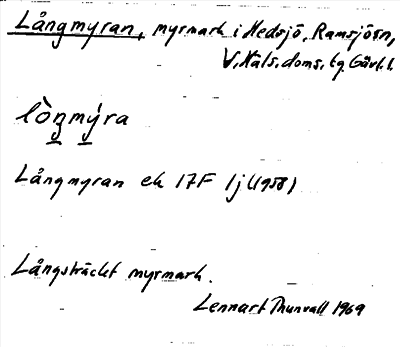 Långmyran, myrmark i Hedsjö, Ramsjösn,
V. Häls. doms. tg. Gävl. l.
lòŋmýra
Långmyran ek 17F 1j (1958)
Långsträckt myrmark.
Lennart Thunvall 1969